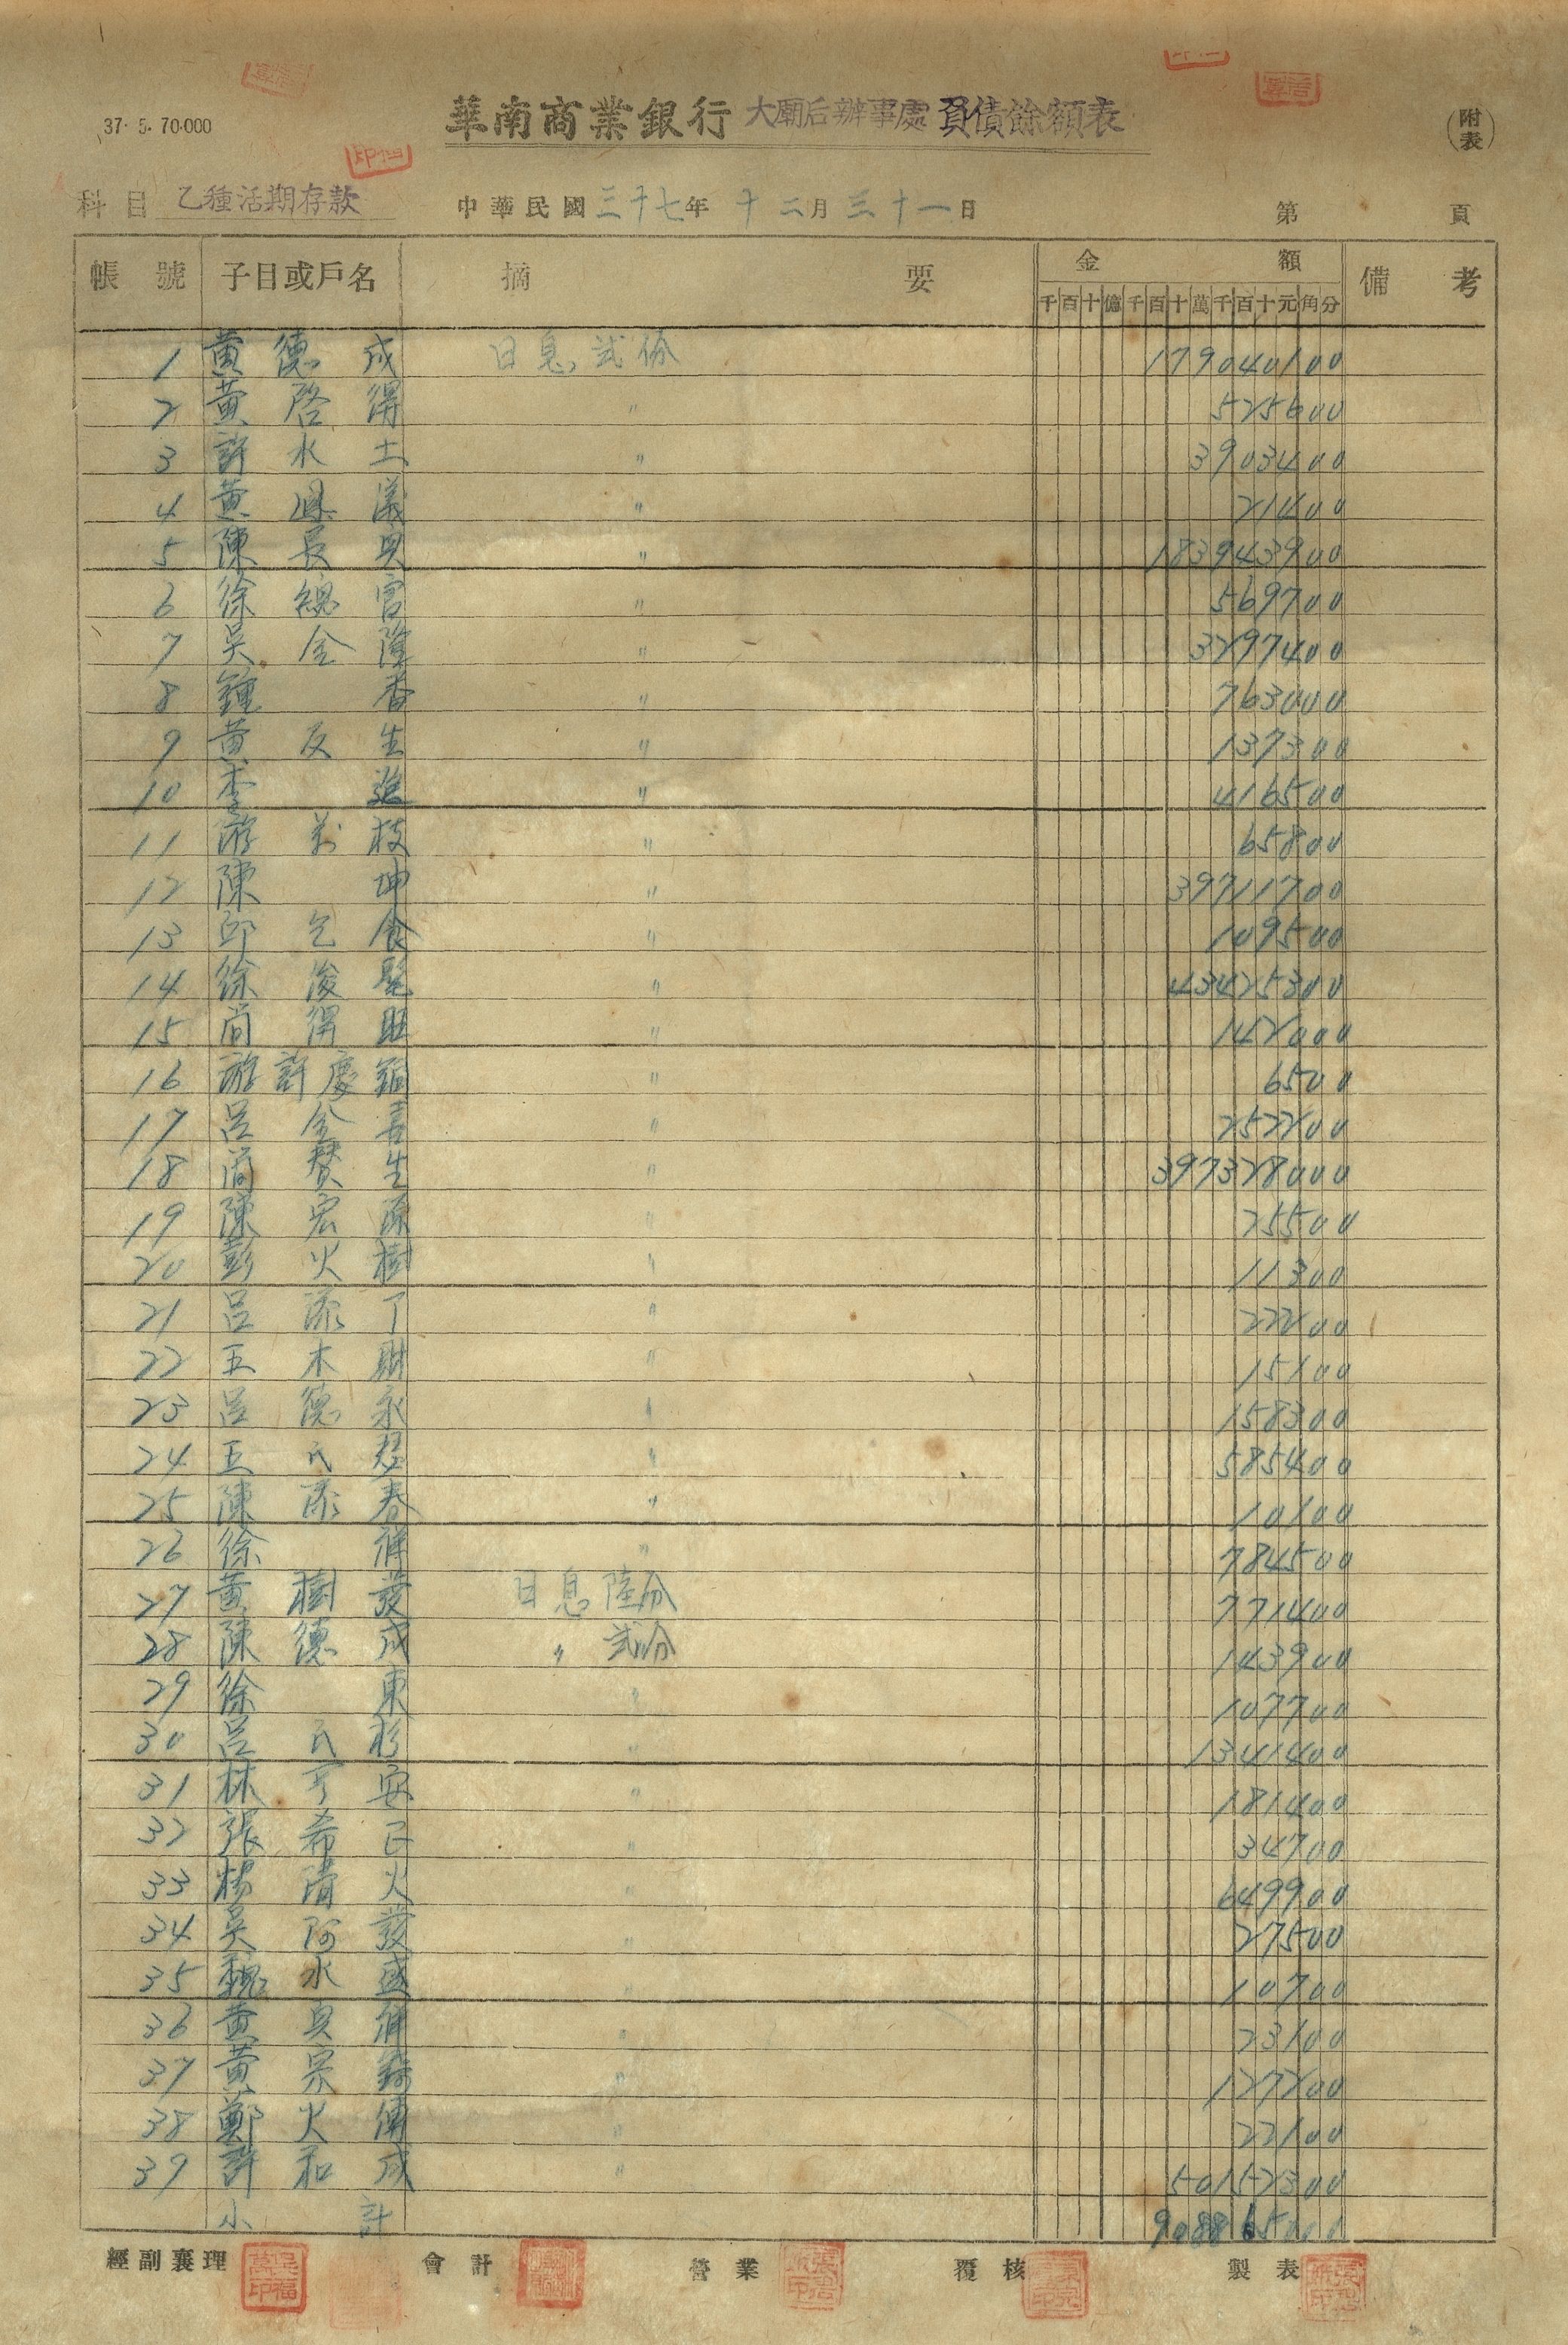 37. 5. 70.000
華南商業銀行 大廟后辦事處 負債餘額表
(附表)
科目 乙種活期存款 中華民國三十七年十二月三十一日 第 頁
帳號 子目或戶名 摘要 金額 備考
千百十億千百十萬千百十元角分
1 黃德成 日息貳份 179040100
2 黃啓得 〃 525600
3 許水土 〃 3903400
4 黃 儀 〃 21400
5 陳長與 〃 183943900
6 徐 官 〃 569700
7 吳金隆 〃 3297400
8 鍾香 〃 763000
9 黃反生 〃 137300
10 李進 〃 416500
11 游 枝 〃 65800
12 陳坤 〃 39711700
13 邱乞食 〃 109500
14 徐俊 〃 43425300
15 簡得旺 〃 142000
16 游許慶 〃 6500
17 呂金喜 〃 252200
18 簡賛生 〃 397328000
19 陳宏源 〃 25500
20 彭火樹 〃 11300
21 呂添丁 〃 22200
22 王木財 〃 15100
23 呂德永 〃 158300
24 王氏 〃 585400
25 陳添春 〃 10100
26 徐 〃 784500
27 黃樹發 日息陸份 771400
28 陳德成 〃 貳份 143900
29 徐東 〃 107700
30 呂氏杉 〃 1341400
31 林 安 〃 181400
32 張希 〃 34700
33 楊清火 〃 649900
34 吳阿發 〃 27500
35 魏水盛 〃 10700
36 黃 〃 23100
37 黃宗 〃 127200
38 鄭火傳 〃 22100
39 許和成 〃 50152300
小計
經副襄理 會計 營業 覆核 製表